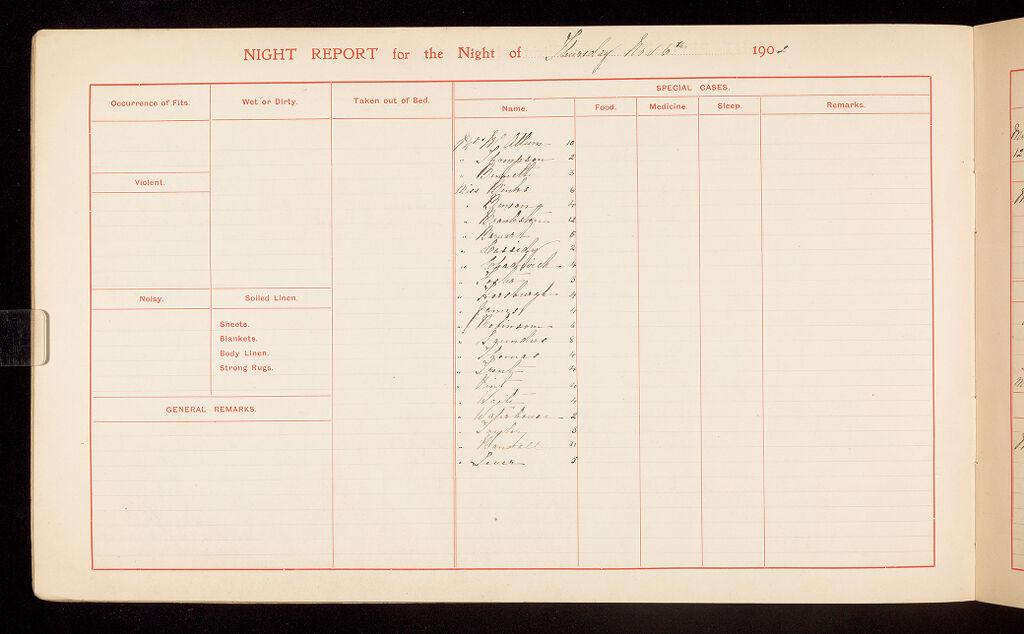 NIGHT REPORT for the Night of Thursday Nov 6th 1902
Occurrence of Fits.
Wet or Dirty.
Taken out of Bed.
SPECIAL CASES.
Name.
Food.
Medicine.
Sleep.
Remarks.
Violent.
Noisy.
Soiled Linen.
Sheets.
Blankets.
Body Linen.
Strong Rugs.
GENERAL REMARKS.
Mrs McAllum 10
" Thompson 2
" Bennett 3
Miss Binks 6
" Benson 4
" 12
" 5
" Cassidy 2
" Chadwick 4
" Foster 3
" Horsburgh 4
" James 4
" Robinson 6
" Saunders 8
" Thomas 4
" Trent 4
"
" Waite 4
" Waterhouse 2
" Taylor 3
" Randall 11
" 5